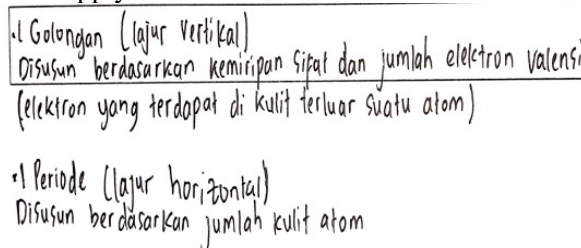 .| Golongan (lajur vertikal)
Disusun berdasarkan kemiripan sifat dan jumlah elektron valensi
(elektron yang terdapat di kulit terluar suatu atom)
.| Periode (lajur horizontal)
Disusun berdasarkan jumlah kulit atom